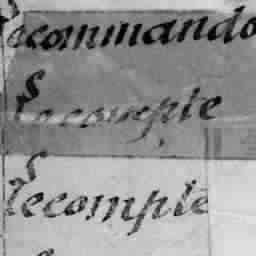 ecommando
Lecompte
Lecompte